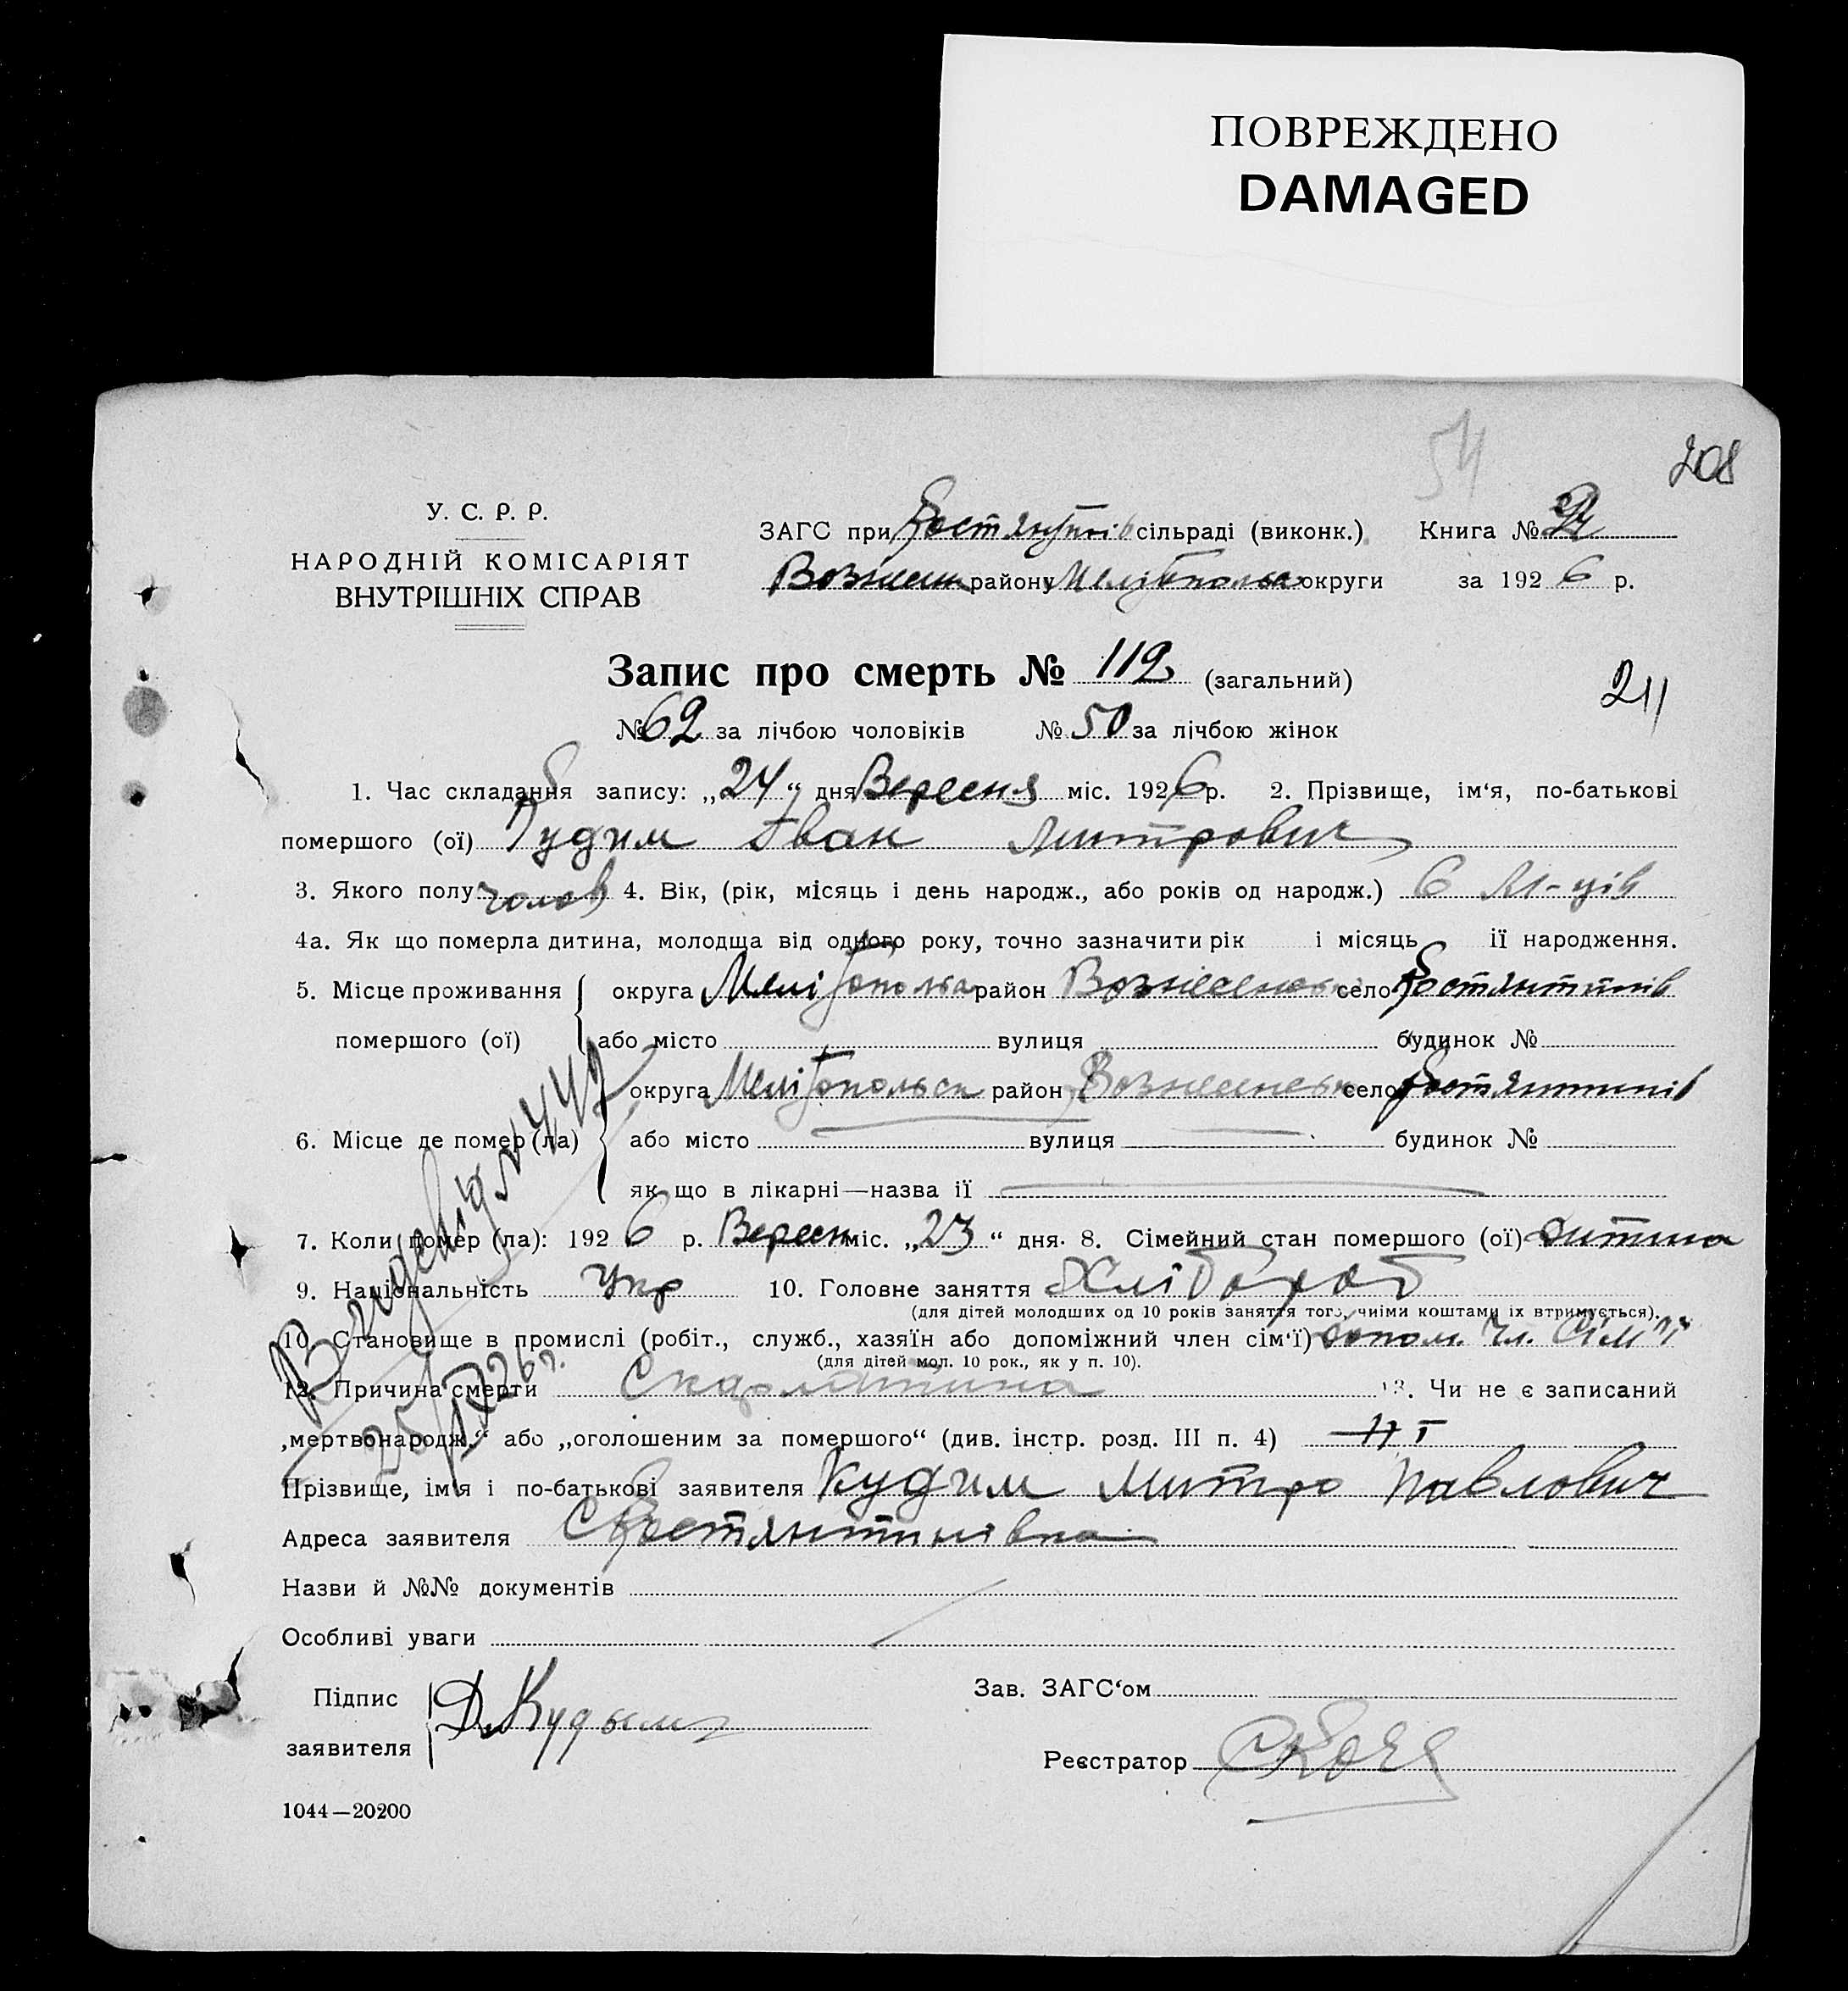 ПОВРЕЖДЕНО
DAMAGED
54
208
У. С. Р. Р.
НАРОДНІЙ КОМІСАРІЯТ
ВНУТРІШНІХ СПРАВ
ЗАГС при Костянтинів сільраді (виконк.) Книга №
Вознесен району Мелітопольс округи за 1926 р.
Запис про смерть № 112 (загальний)
211
№ 62 за лічбою чоловіків № 50 за лічбою жінок
1. Час складання запису: „24“ дня Вересня міс. 1926 р. 2. Прізвище, ім‘я, по-батькові
помершого (ої) Кудим Іван Митрович
3. Якого полу чолов 4. Вік, (рік, місяць і день народж., або років од народж.) 6 м-ців
4а. Як що померла дитина, молодща від одного року, точно зазначити рік і місяць її народження.
5. Місце проживання округа Мелітопольска район Вознесенськ село Костянтинів
помершого (ої) або місто вулиця будинок №
округа Мелітопольськ район Вознесенськ село Костянтинів
6. Місце де помер (ла) або місто вулиця будинок №
як що в лікарні—назва її
7. Коли помер (ла): 1926 р. Вересн міс. „23“ дня. 8. Сімейний стан помершого (ої) дитина
9. Національність Укр 10. Головне заняття Хлібороб
(для дітей молодших од 10 років заняття того, чиїми коштами їх втримується).
10. Становище в промислі (робіт., служб., хазяїн або допоміжний член сім‘ї) допом. чл. сім"ї
(для дітей мол. 10 рок., як у п. 10).
12. Причина смерти Скарлатина 13. Чи не є записаний
„мертвонародж.“ або „оголошеним за помершого“ (див. інстр. розд. III п. 4) Ні
Прізвище, ім‘я і по-батькові заявителя Кудим Митро Павлович
Адреса заявителя С Костянтинівка
Назви й №№ документів
Особливі уваги
Підпис
заявителя Д. Кудым
Зав. ЗАГС‘ом
Реєстратор
1044—20200